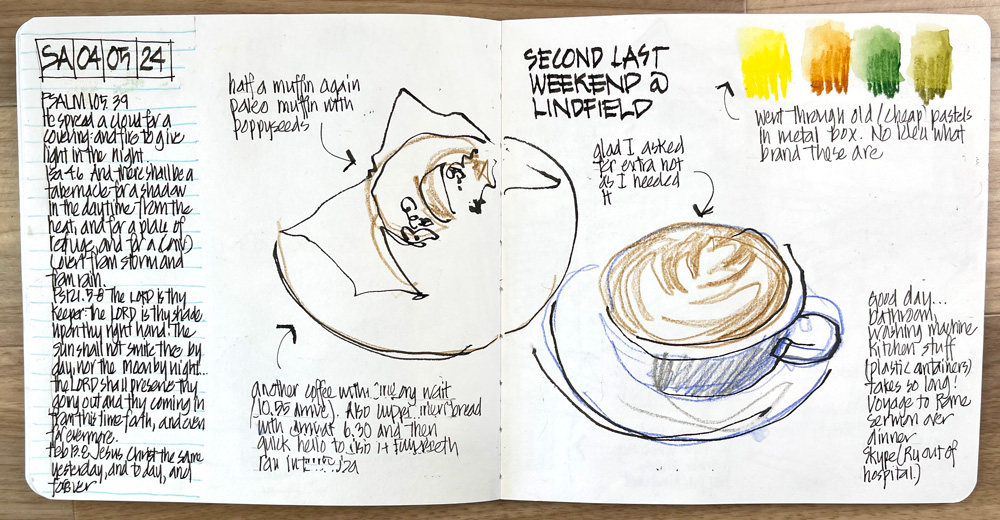 SA 04 05 24
PSALM 105. 39
to spread a cloud for a
covering: and fire to give
light in the night.
Isa 4.6 And there shall be a
tabernacle for a shadow
in the daytime from the
heat, and for a place of
refuge, and for a
covert from storm and
from rain.
Ps 121. 5-8 The LORD is thy
keeper: the LORD is thy shade
upon thy right hand. The
sun shall not smite thee by
day, nor the moon by night...
the LORD shall preserve thy
going out and thy coming in
from this time forth, and even
for evermore.
Heb 13.8 Jesus Christ the same
yesterday, and to day, and
forever
half a muffin again
paleo muffin with
poppyseeds
another coffee with wait
(10.55 arrive). Also bread
with arrival 6.30 and then
quick hello to
ran into
SECOND LAST
WEEKEND @
LINDFIELD
glad I asked
for extra hot
as I needed
it
went through old (cheap) pastels
in metal box. No idea what
brand these are
Good day...
bathroom,
washing machine
kitchen stuff
(plastic containers)
takes so long!
Voyage to Rome
sermon over
dinner
Skype (Ru out of
hospital.)